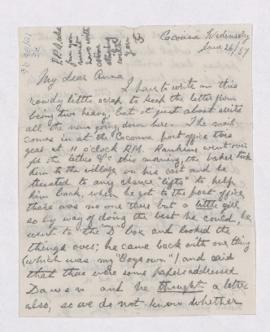 Cocoana Wednesday
June 26/57
My dear Anna
I have to write on this
rowdy little scrap to keep the letter from
being two heavy, but it just about suits
all the news going down here. The mail
comes in at the Cocoana post office this
year at 11 o'clock P.M. Hawkins went over
for the letters &c this morning, the baker took
him to the village on his cart and he
trusted to any chance "lifts" to help
him back, when he got to the post office,
there was no one there but a little girl
so by way of doing the best he could, he
went to the D box and looked the
things over; he came back with one thing
(which was my own) and said
that there were some papers addressed
Dawson and he thought a letter
also, so we do not know whether
P.S.
you